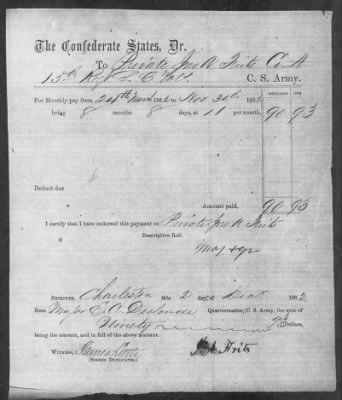 The Confederate States, Dr.
To Private Jno A Frits Co A
15th Regt S. C. Vols. C. S. Army.
DOLLARS CTS
For Monthly pay from 24th March 1862 to Nov 30th 1862
being 8 months 8 days, at 11 per month, 90 93
Deduct due
Amount paid, 90 93
I certify that I have endorsed this payment on Private Jno A Frits
Descriptive Roll.
Maj &
Received Charleston this 2 day of Decr 1862
from Major E. A. Deslonde Quartermaster, C. S. Army, the sum of
Ninety 93 Dollars,
being the amount, and in full of the above account.
Witness James
(SIGNED DUPLICATES.)
J. A. Frits